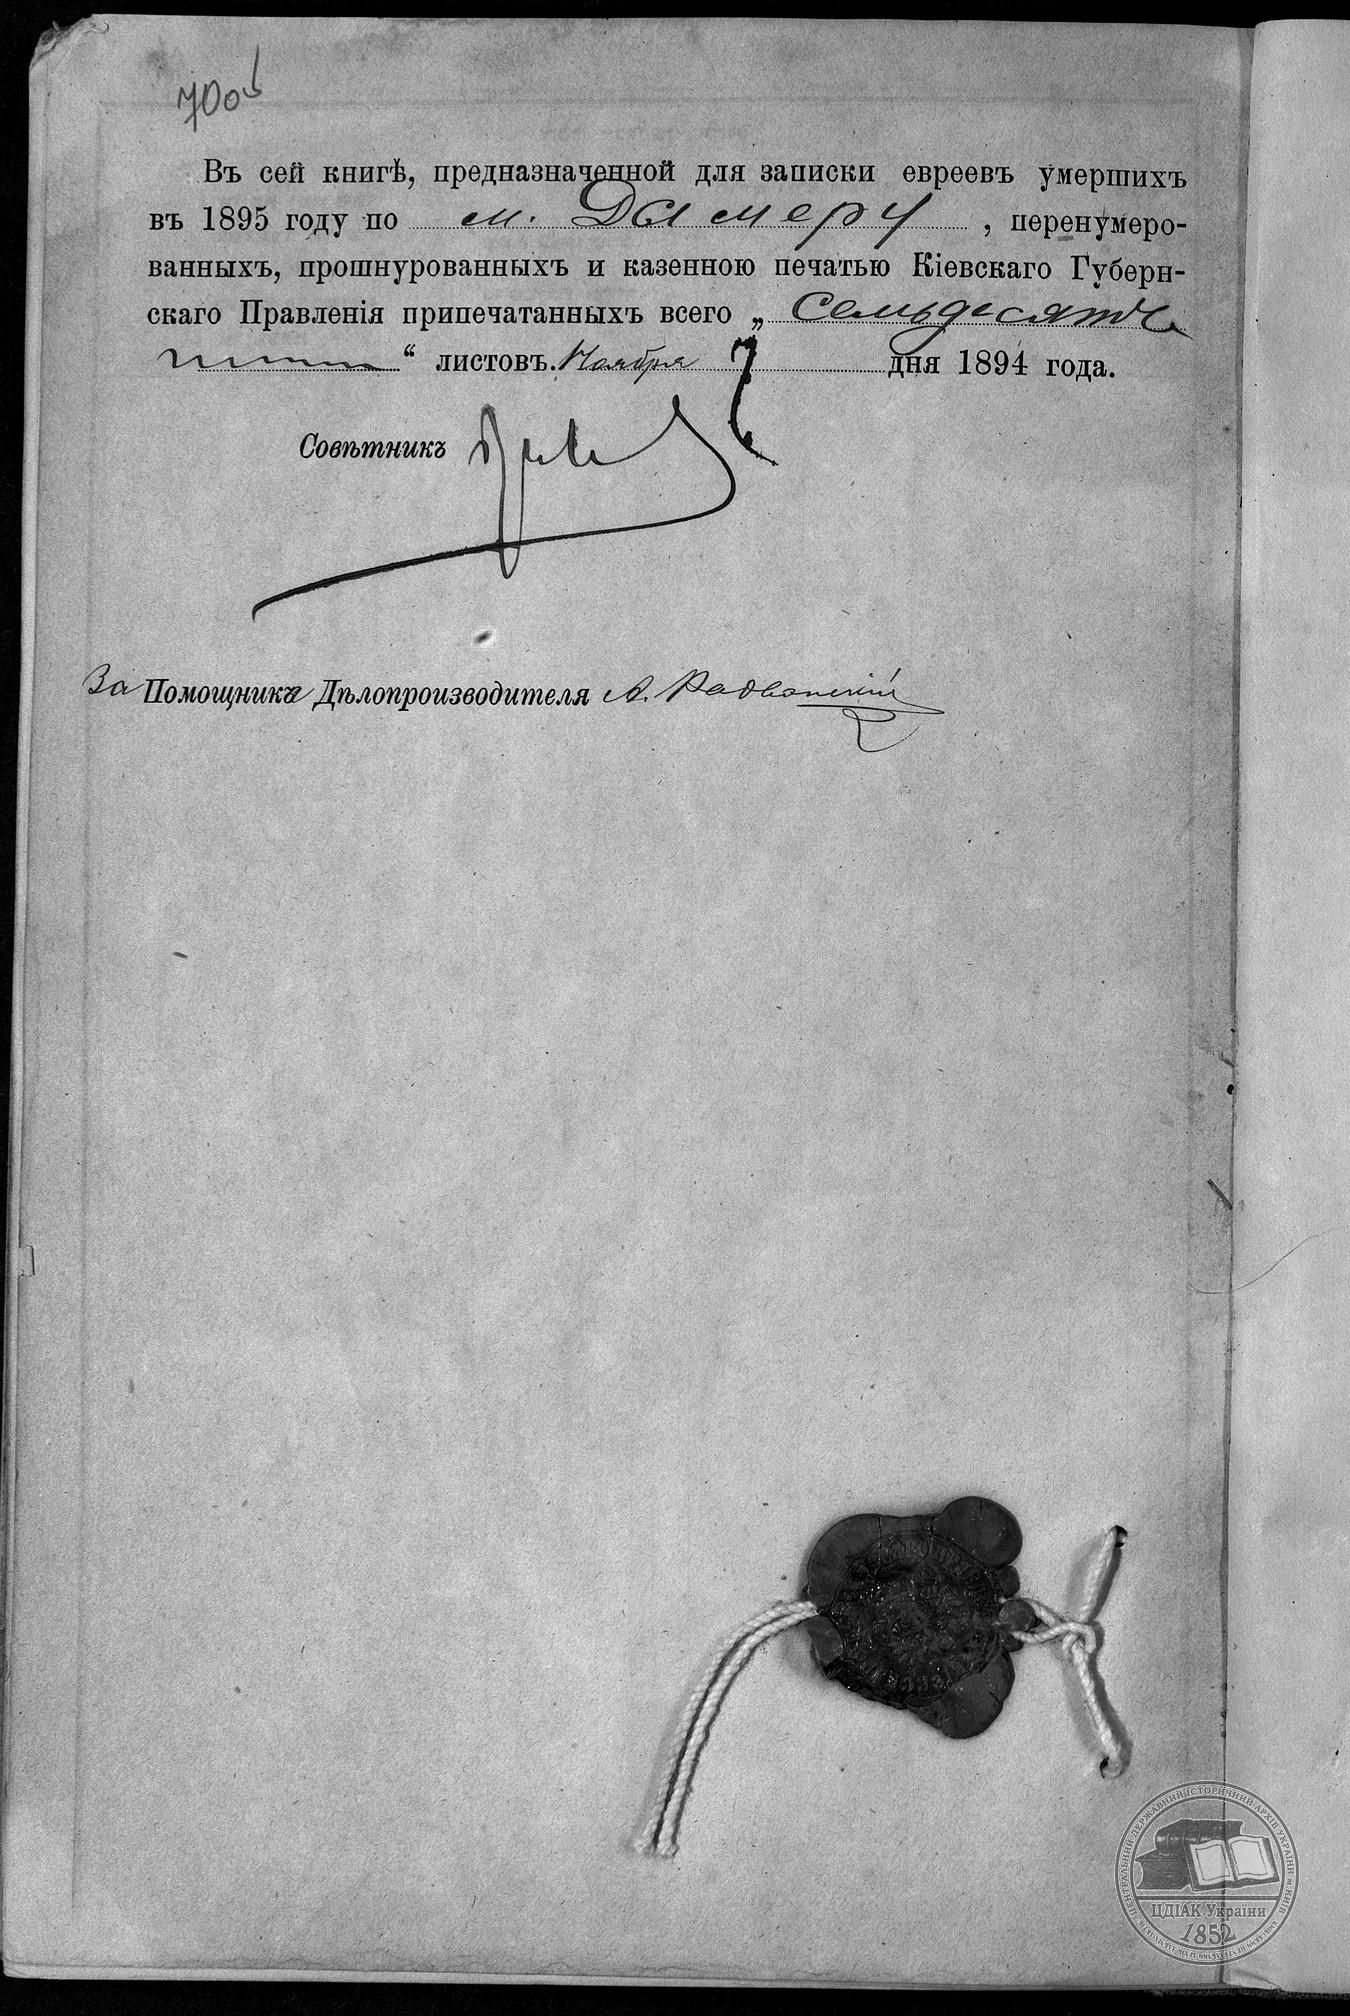 Въ сей книгѣ, предназначенной для записки евреевъ умершихъ
въ 1895 году по м. Дымеру, перенумеро-
ванныхъ, прошнурованныхъ и казенною печатью Кіевскаго Губерн-
скаго Правленія припечатанныхъ всего „ Семьдесять
“ листовъ. Ноября 7 дня 1894 года.
Совѣтникъ
За Помощника Дѣлопроизводителя А. Радванскій
ЦЕНТРАЛЬНИЙ ДЕРЖАВНИЙ ІСТОРИЧНИЙ АРХІВ УКРАЇНИ м. КИЇВ
ЦДІАК України
1852